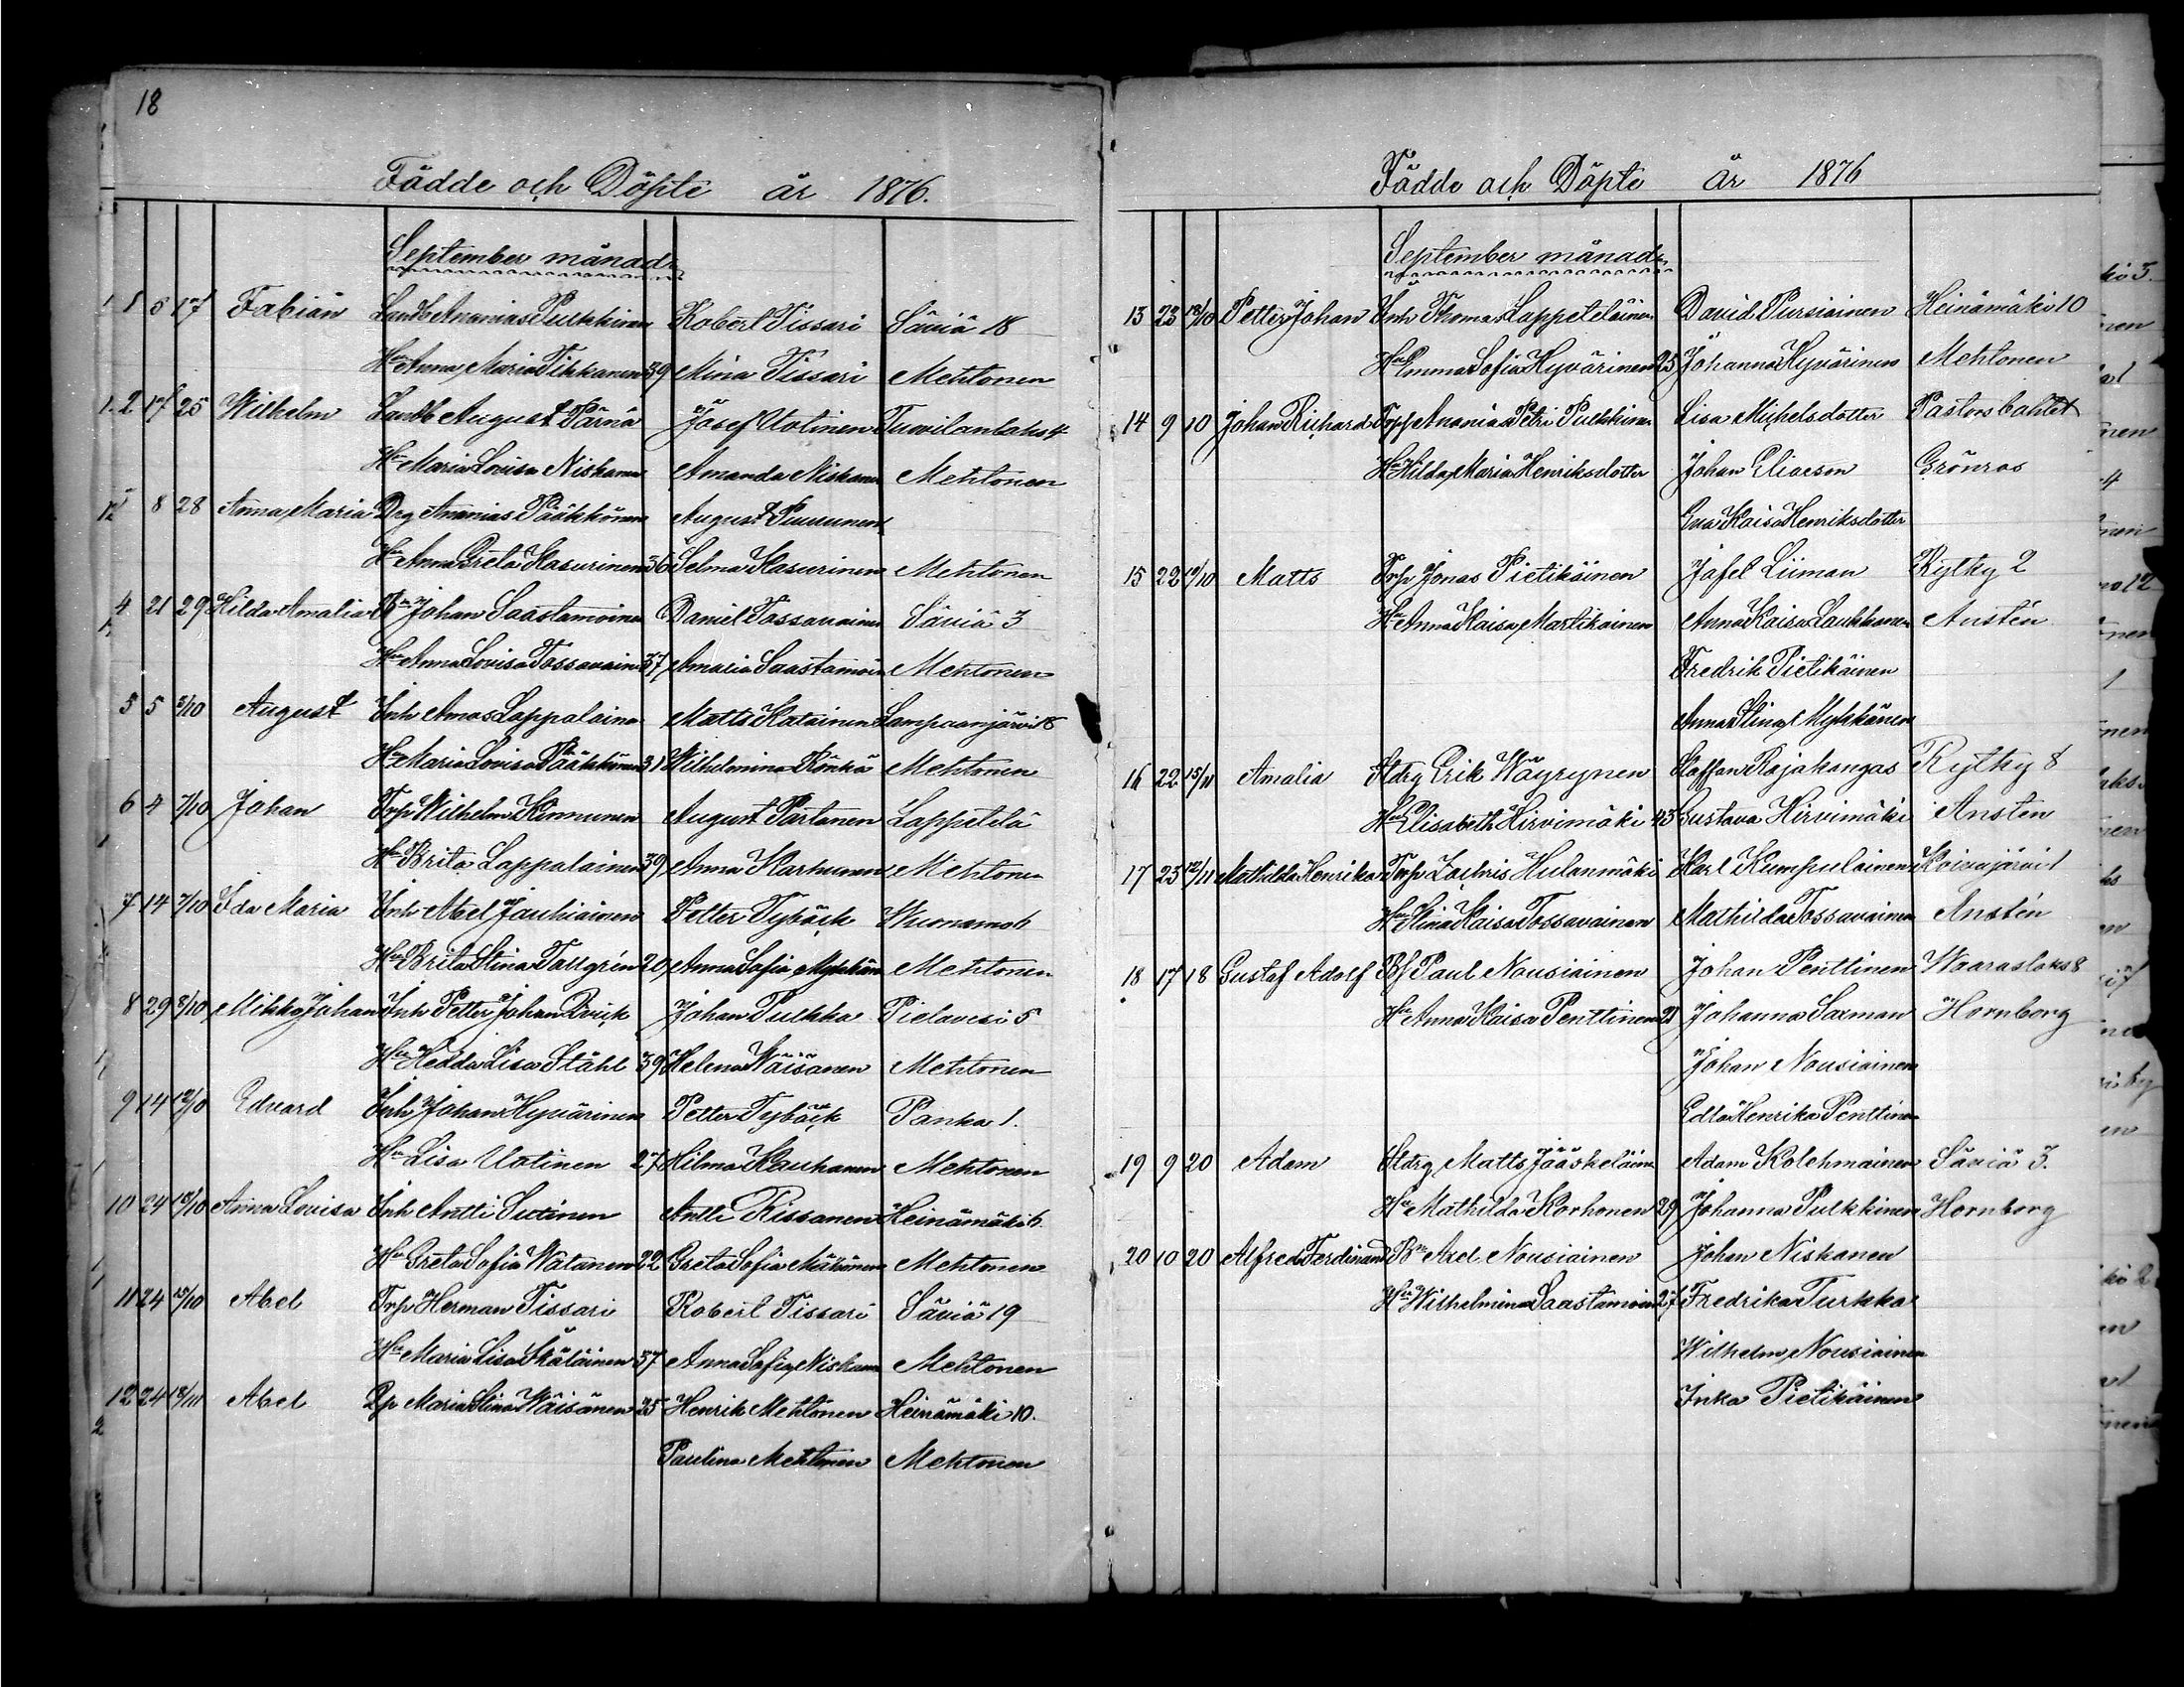 18
Fädde och Döpte år 1876.
September månad.
1 5 17 Fabian Landb Ananias Pulkkinen Robert Tissari Säviä 18
Hu Anna Maria Tikkanen 39 Mina Tissari Mehtonen
2 17 25 Wilhelm Landb August Pärnä Josef Uotinen Tuovilanlaks 4
Hu Maria Lovisa Niskanen Amanda Niskanen Mehtonen
8 28 Anna Maria Drg Ananias Pääkkönen August Puurunen
Hu Anna Greta Kasurinen 36 Selma Kasurinen Mehtonen
4 21 29 Hilda Amalia Bn Johan Saastamoinen Daniel Tossavainen Säviä 3
Hu Anna Lovisa Tossavainen 37 Amaria Saastamoinen Mehtonen
5 5 3/10 August Inh Amos Lappalainen Matts Katainen Lampaanjärvi 8
Hu Maria Lovisa Pääkkönen 31 Wilhelmina Rönkä Mehtonen
6 4 7/10 Johan Trp Wilhelm Kinnunen August Partanen Lappetelä
Hu Brita Lappalainen 39 Anna Karhunen Mehtonen
7 14 7/10 Ida Maria Inh Abel Jauhiainen Petter Tybäck Wuonamo 6
Hu Brita Stina Tallgrén 20 Anna Sofia Mykkänen Mehtonen
8 29 8/10 Mikko Johan Inh Petter Johan Qvick Johan Pulkka Pielavesi 5
Hu Hedda Lisa Ståhl 39 Helena Wäisänen Mehtonen
9 14 12/10 Edvard Inh Johan Hyvärinen Petter Tybäck Panka 1.
Hu Lisa Uotinen 27 Hilma Kauhanen Mehtonen
10 24 Anna Lovisa Inh Antti Sutinen Antti Rissanen Heinämäki 6
Hu Greta Sofia Watanen 22 Greta Sofia Mähönen Mehtonen
11 24 15/10 Abel Trp Herman Tissari Robert Tissari Säviä 19
Hu Maria Lisa 37 Anna Sofia Niskanen Mehtonen
12 24 18/10 Abel Qp Maria Stina Wäisänen 25 Henrik Mehtonen Heinämäki 10.
Paulina Mehtonen Mehtonen
Fädde och Döpte år 1876
September månad.
13 23 18/10 Petter Johan Inh Thomas Lappeteläinen David Pursiainen Heinämäki 10
Hu Emma Sofia Hyvärinen 25 Johanna Hyvärinen Mehtonen
14 9 10 Johan Richard Trp Ananias Petri Pulkkinen Lisa Michelsdotter Pastorsbohlet
Hu Hilda Maria Henriksdotter Johan Eliaeson Grönroos
Eva Kaisa Henriksdotter
15 22 12/10 Matts Trp Jonas Pietikäinen Jafet Liiman Rytky 2
Hu Anna Kaisa Martikainen Anna Kaisa Laukkanen Austén
Fredrik Pietikäinen
Anna Stina Mykkänen
16 22 15/11 Amalia Stdrg Erik Wäyrynen Staffan Rajakangas Rytky 8
Hu Elisabeth Hirvimäki 43 Gustava Hirvimäki Austén
17 25 12/11 Mathilda Henrika Trp Zachris Hulanmäki Karl Kumpulainen Koivujärvi 1
Hu Stina Kaisa Tossavainen Mathilda Tossavainen Austén
18 17 18 Gustaf Adolf Bf Paul Nousiainen Johan Penttinen Waaraslaks 8
Hu Anna Kaisa Penttinen 21 Johanna Saxman Hornborg
Johan Nousiainen
Edla Henrika Penttinen
19 9 20 Adam Stdrg Matts Jääskeläinen Adam Kolehmainen Säviä 3.
Hu Mathilda Korhonen 29 Johanna Pulkkinen Hornborg
20 10 20 Alfred Ferdinand Bn Axel Nousiainen Johan Niskanen
Hu Wilhelmina Saastamoinen 27 Fredrika Turkka
Wilhelm Nousiainen
Inka Pietikäinen